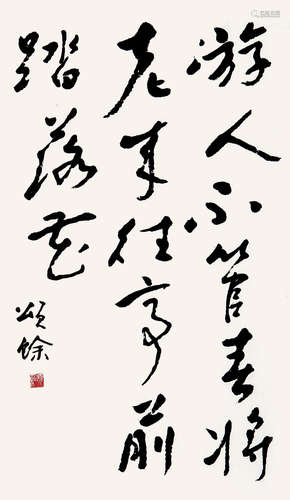 游人不管春将
老来往亭前
踏落花
颂馀